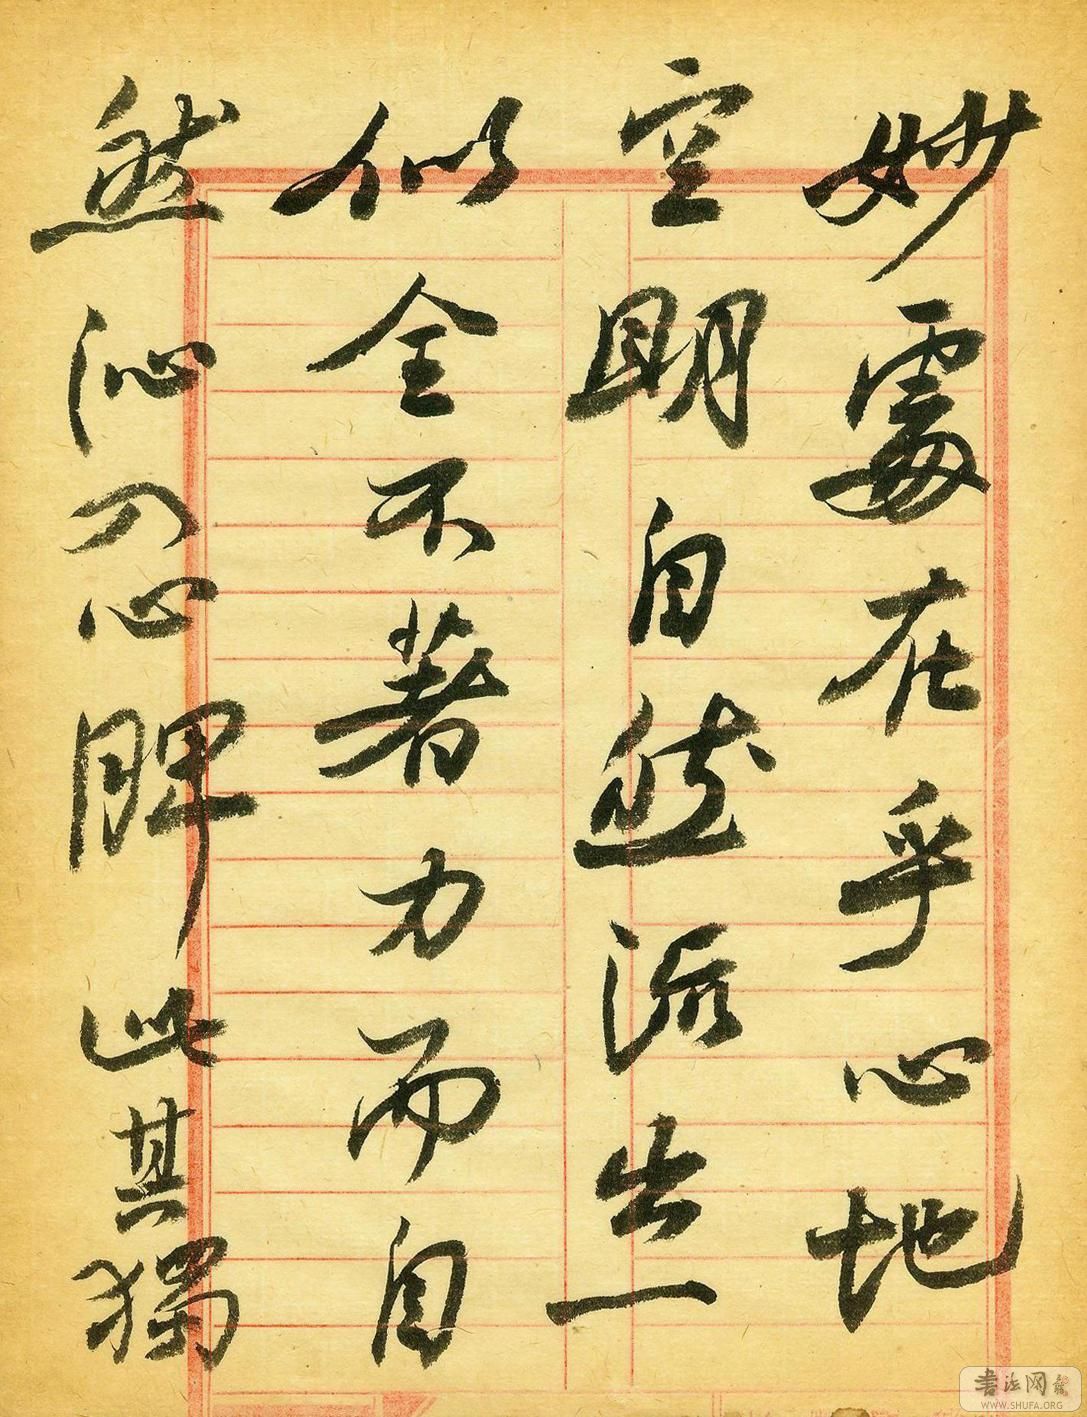 妙處在乎心地
空明自然流出一
似全不著力而自
然沁忍脾此其獨
書法网
WWW.SHUFA.ORG